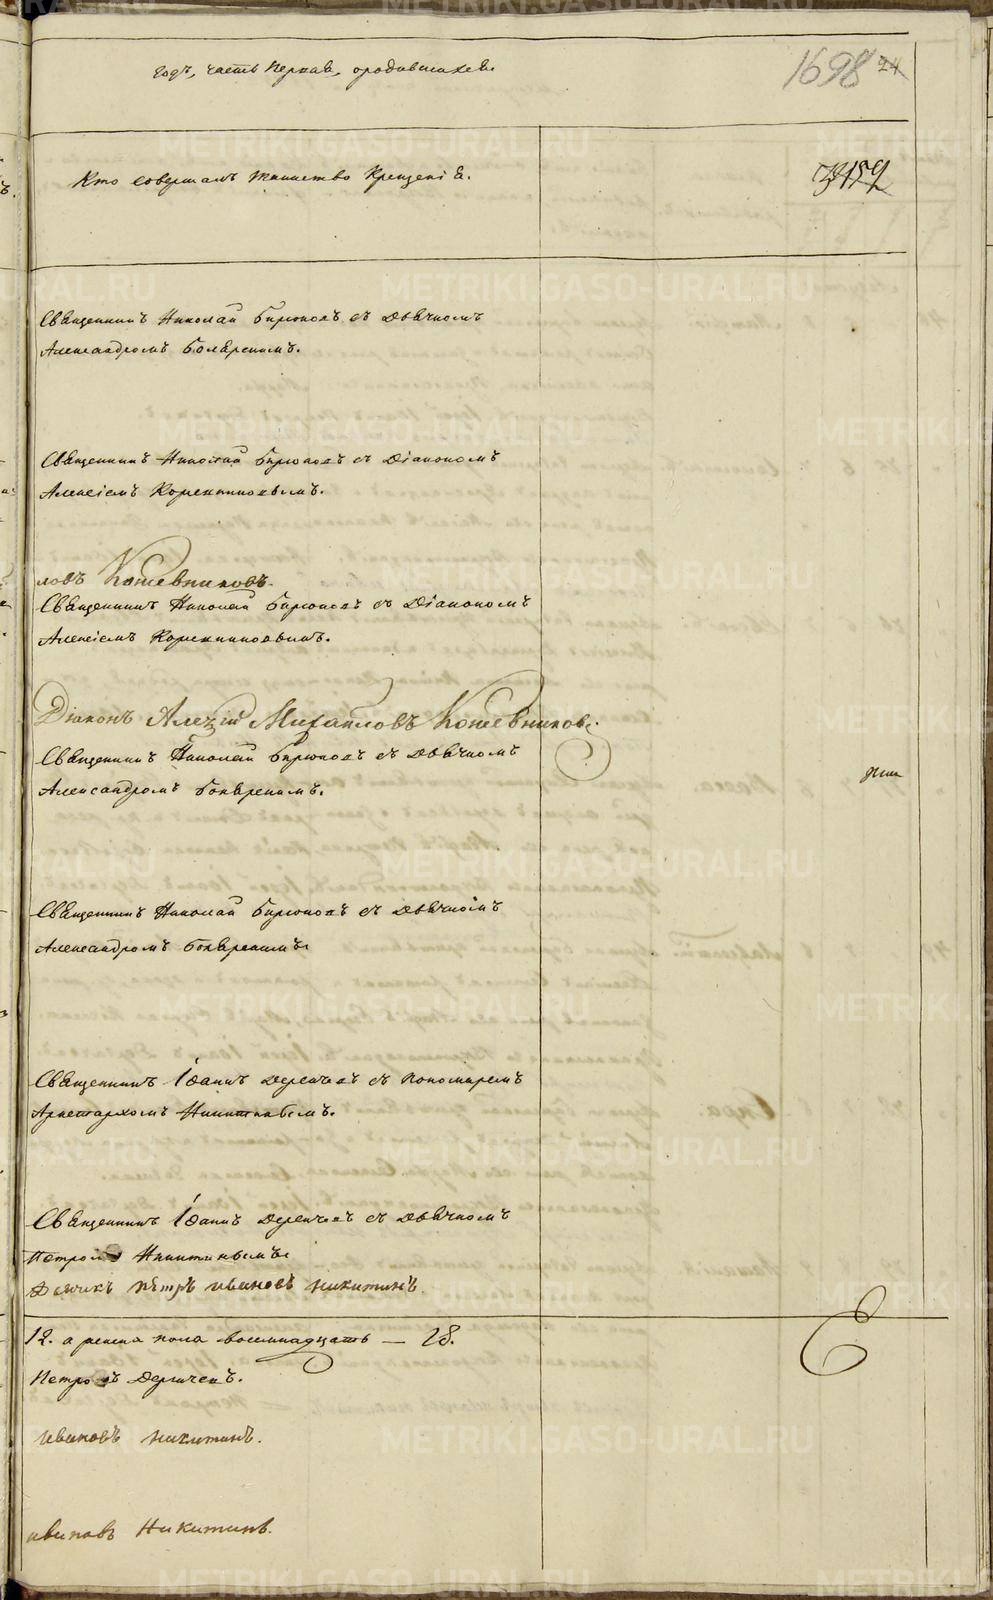 годъ, часть первая, о родившихся.
1698 24
Кто совершалъ таинство Крещенія.
3159
Священникъ Николай Бирюковъ съ Дьячкомъ
Александромъ Бояркинымъ.
Священникъ Николай Бирюковъ съ Діакономъ
Алексіемъ
ловъ Кожевниковъ.
Священникъ Николай Бирюковъ съ Діакономъ
Алексіемъ
Діаконъ Алексій Михайловъ Кожевниковъ.
Священникъ Николай Бирюковъ съ Дьячкомъ
Александромъ
Священникъ Николай Бирюковъ съ Дьячкомъ
Александромъ
Священникъ Іоаннъ Дерябинъ съ Пономаремъ
Аристархомъ Никитинымъ.
Священникъ Іоаннъ съ Дьячкомъ
Петромъ Никитинымъ.
Дьячикъ Пѣтръ Ивановъ Никитинъ.
12. а женска пола восемнадцать — 18.
Петро
Ивановъ Никитинъ.
Ивановъ Никитинъ.
METRIKI.GASO-URAL.RU